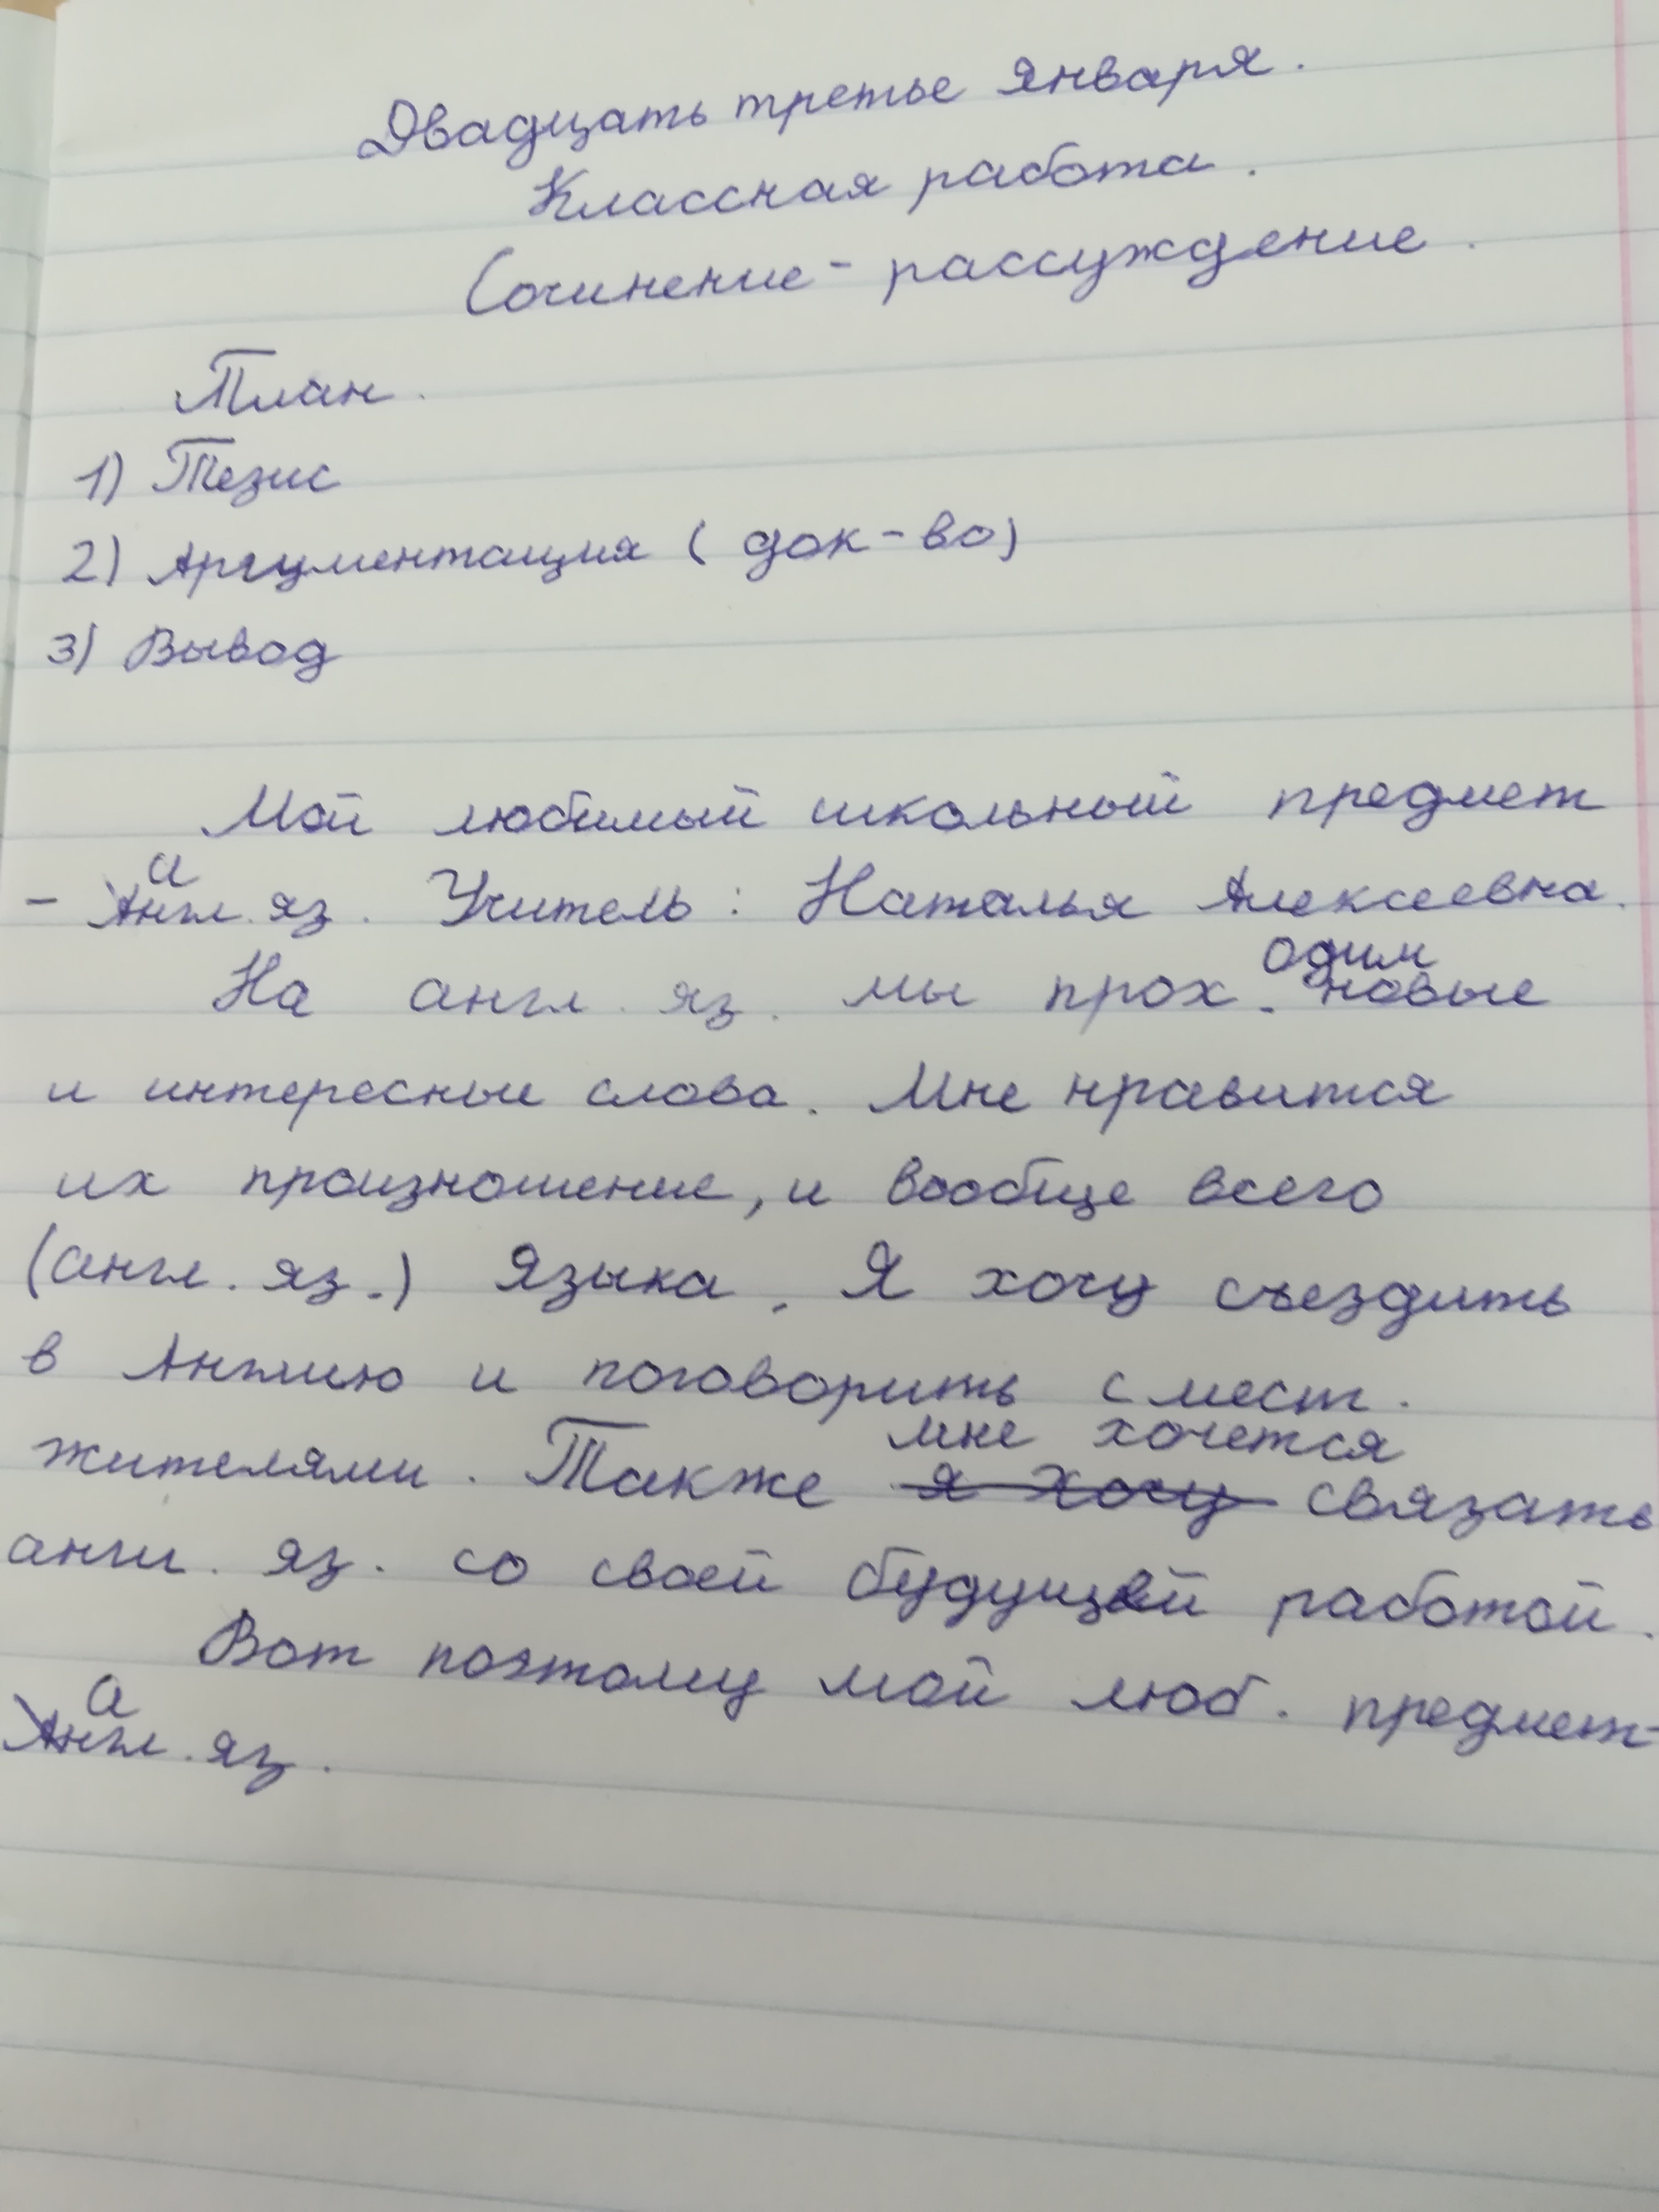 Двадцать третье января.
Классная работа.
Сочинение - рассуждение.
План.
1) Тезис
2) Аргументация (док-во)
3) Вывод
Мой любимый школьный предмет
а
- Англ. яз. Учитель: Наталья Алексеевна.
одим
На англ. яз. мы прох. новые
и интересные слова. Мне нравится
их произношение, и вообще всего
(англ. яз.) языка. Я хочу съездить
в Англию и поговорить с мест.
мне хочется
жителями. Также я хочу связать
англ. яз. со своей будущей работой.
Вот поэтому мой люб. предмет-
а
Англ. яз.